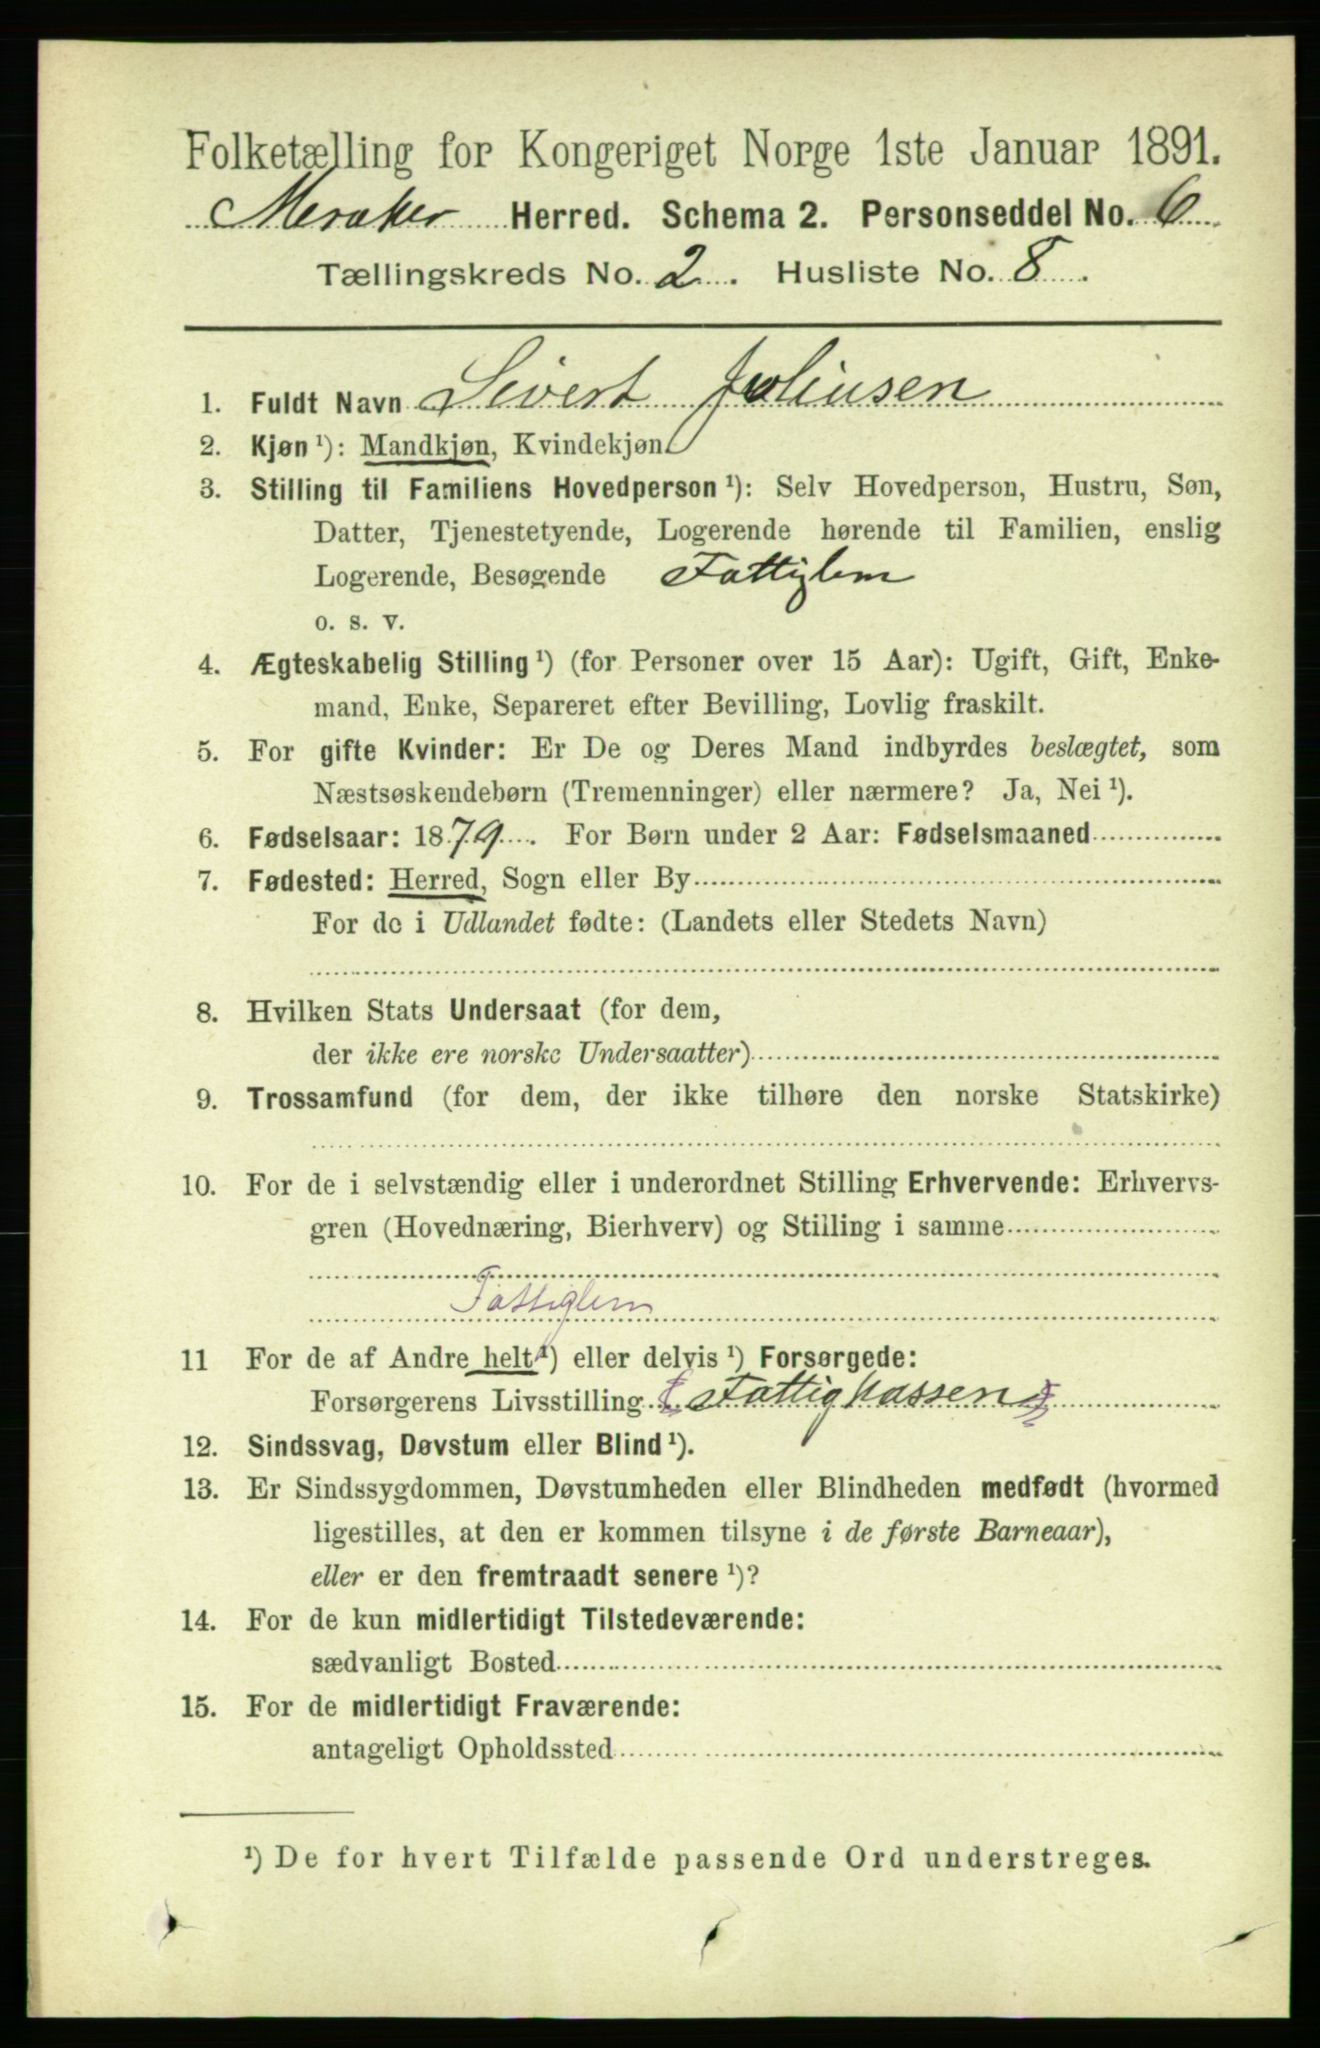 Folketælling for Kongeriget Norge 1ste Januar 1891.
Meraker Herred. Schema 2. Personseddel No. 6
Tællingskreds No. 2. Husliste No. 8.
1. Fuldt Navn Sivert Johnsen
2. Kjøn ¹): Mandkjøn, Kvindekjøn.
3. Stilling til Familiens Hovedperson ¹): Selv Hovedperson, Hustru, Søn,
Datter, Tjenestetyende, Logerende hørende til Familien, enslig
Logerende, Besøgende Fattiglem
o. s. v.
4. Ægteskabelig Stilling ¹) (for Personer over 15 Aar): Ugift, Gift, Enke-
mand, Enke, Separeret efter Bevilling, Lovlig fraskilt.
5. For gifte Kvinder: Er De og Deres Mand indbyrdes beslægtet, som
Næstsøskendebørn (Tremenninger) eller nærmere? Ja, Nei ¹).
6. Fødselsaar: 1879. For Børn under 2 Aar: Fødselsmaaned
7. Fødested: Herred, Sogn eller By
For de i Udlandet fødte: (Landets eller Stedets Navn)
8. Hvilken Stats Undersaat (for dem,
der ikke ere norske Undersaatter)
9. Trossamfund (for dem, der ikke tilhøre den norske Statskirke)
10. For de i selvstændig eller i underordnet Stilling Erhvervende: Erhvervs-
gren (Hovednæring, Bierhverv) og Stilling i samme
Fattiglem
11 For de af Andre helt ¹) eller delvis ¹) Forsørgede:
Forsørgerens Livsstilling Fattigkassen
12. Sindssvag, Døvstum eller Blind ¹).
13. Er Sindssygdommen, Døvstumheden eller Blindheden medfødt (hvormed
ligestilles, at den er kommen tilsyne i de første Barneaar),
eller er den fremtraadt senere ¹)?
14. For de kun midlertidigt Tilstedeværende:
sædvanligt Bosted
15. For de midlertidigt Fraværende:
antageligt Opholdssted
¹) De for hvert Tilfælde passende Ord understreges.